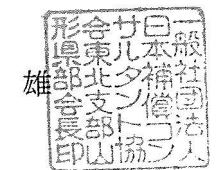 一般社団法人
日本補償コン
サルタント協
会東北支部山
形県部会長印
雄